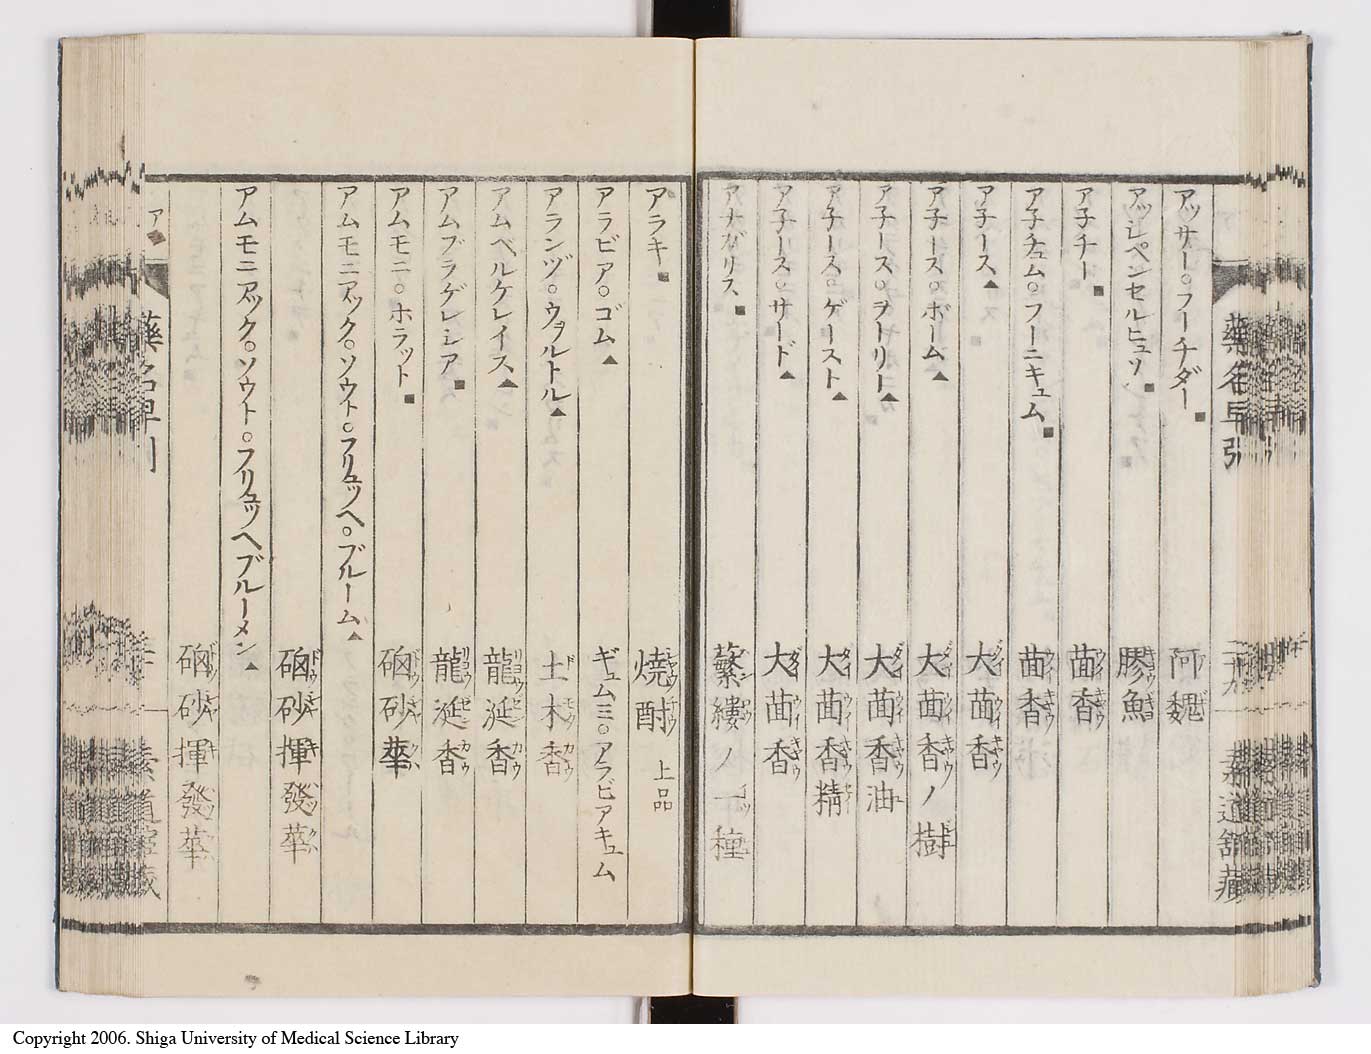 藥名早引
アッサー○フーチダー■ 阿魏
アッレペンセルヒュソ■ 膠鮹
ア子チー■ 茴香
ア子チュム○フーニキュム■ 茴香
ア子ース▲ 大茴香
ア子ース○ボーム▲ 大茴香ノ樹
ア子ース○ヲーリー▲ 大茴香油
ア子ース○ゲースト▲ 大茴香精
ア子ース○サード▲ 大茴香
アナガリス■ 蘩縷ノ一種
アラキ■ 燒酎 上品
アラビア○ゴム▲ ギュムミ○アラビアキュム
アランヅ○ウヲルトル▲ 土木香
アムベルケレイス▲ 龍涎香
アムブラゲレシア■ 龍涎香
アムモニ○ホラット■ 硇砂華
アムモニアック○ソウト○フリュッヘ○ブルーム▲
硇砂揮發華
アムモニアック○ソウト○フリュッヘブルーメン▲
硇砂揮發華
ア
Copyright 2006. Shiga University of Medical Science Library